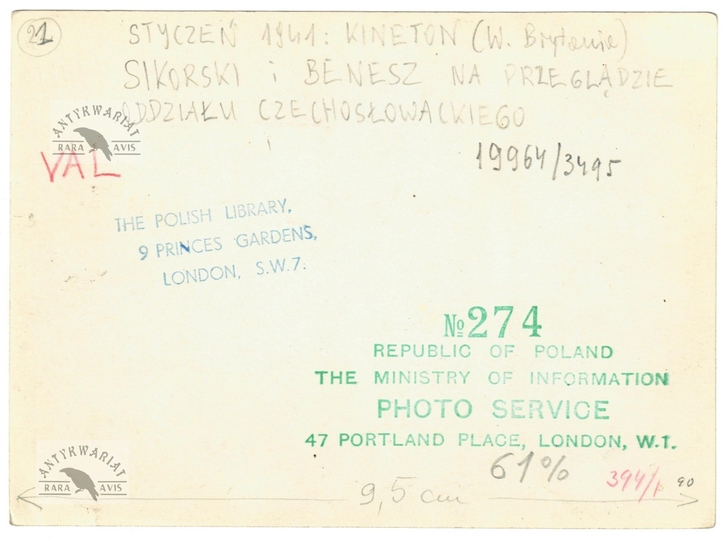 21
STYCZEŃ 1941: KINETON (W. Brytania)
SIKORSKI i BENESZ NA PRZEGLĄDZIE
ODDZIAŁU CZECHOSŁOWACKIEGO
ANTYKWARIAT
RARA AVIS
VAL
19964/3495
THE POLISH LIBRARY,
9 PRINCES GARDENS,
LONDON, S.W.7.
№ 274
REPUBLIC OF POLAND
THE MINISTRY OF INFORMATION
PHOTO SERVICE
47 PORTLAND PLACE, LONDON, W.1.
ANTYKWARIAT
RARA AVIS
61%
9,5 cm
90